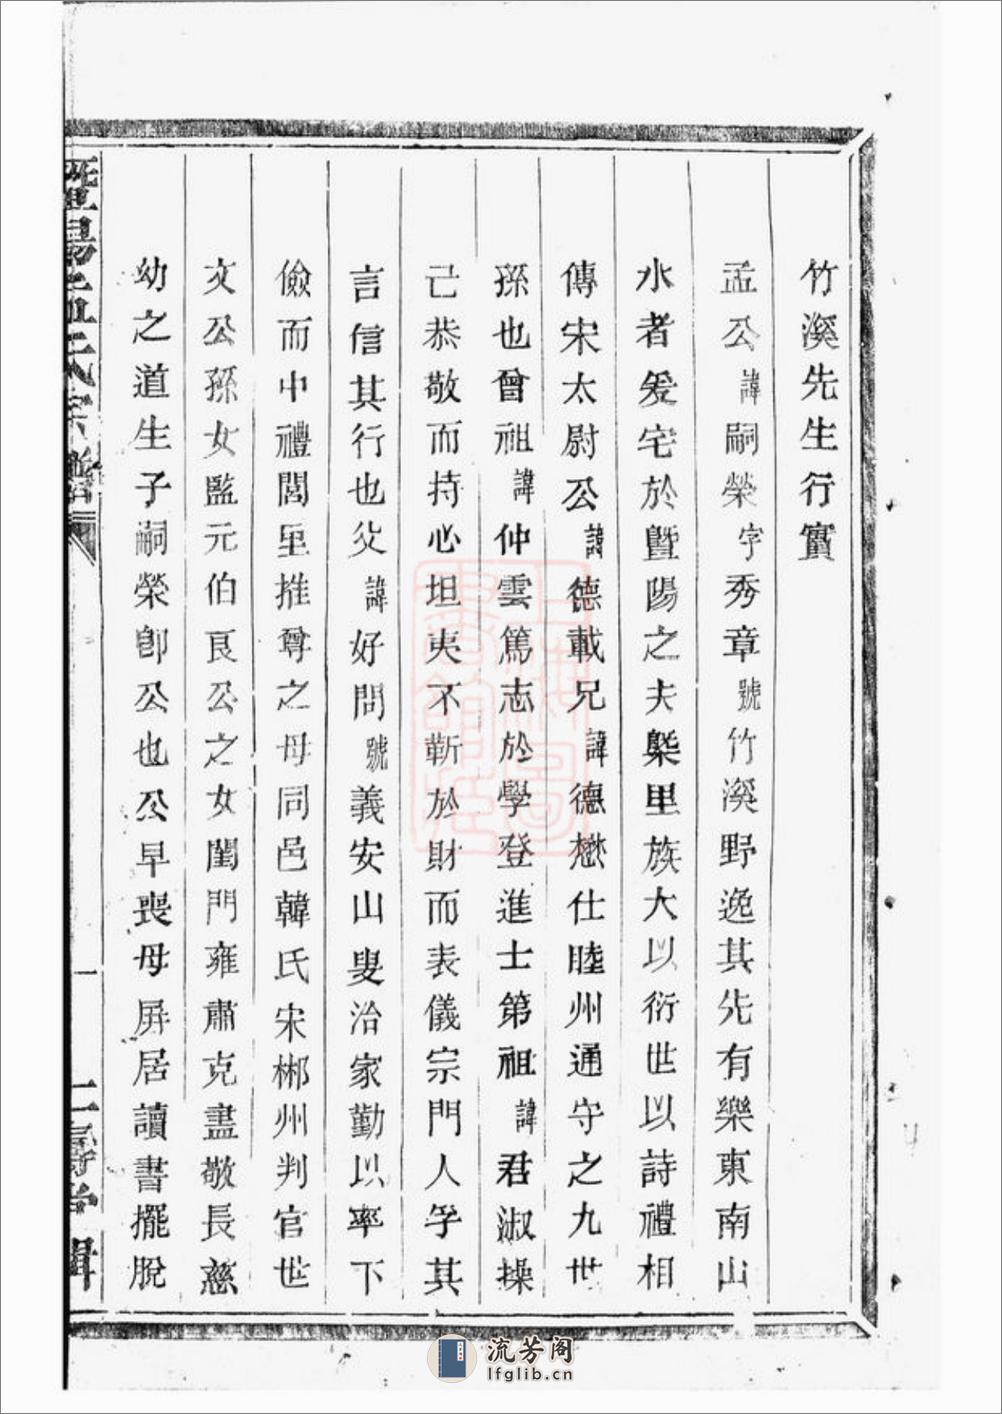 竹溪先生行實
孟公諱嗣榮字秀章號竹溪野逸其先有樂東南山
水者爰宅於暨陽之夫槩里族大以衍世以詩禮相
傳宋太尉公諱德載兄諱德懋仕睦州通守之九世
孫也曾祖諱仲雲篤志於學登進士第祖諱君淑操
己恭敬而持心坦夷不靳於財而表儀宗門人孚其
言信其行也父諱好問號義安山叟治家勤以率下
儉而中禮閭里推尊之母同邑韓氏宋郴州判官世
文公孫女監元伯良公之女閨門雍肅克盡敬長慈
幼之道生子嗣榮卽公也公早喪母屏居讀書擺脫
暨陽孟氏宗譜
一
流芳阁
lfglib.cn